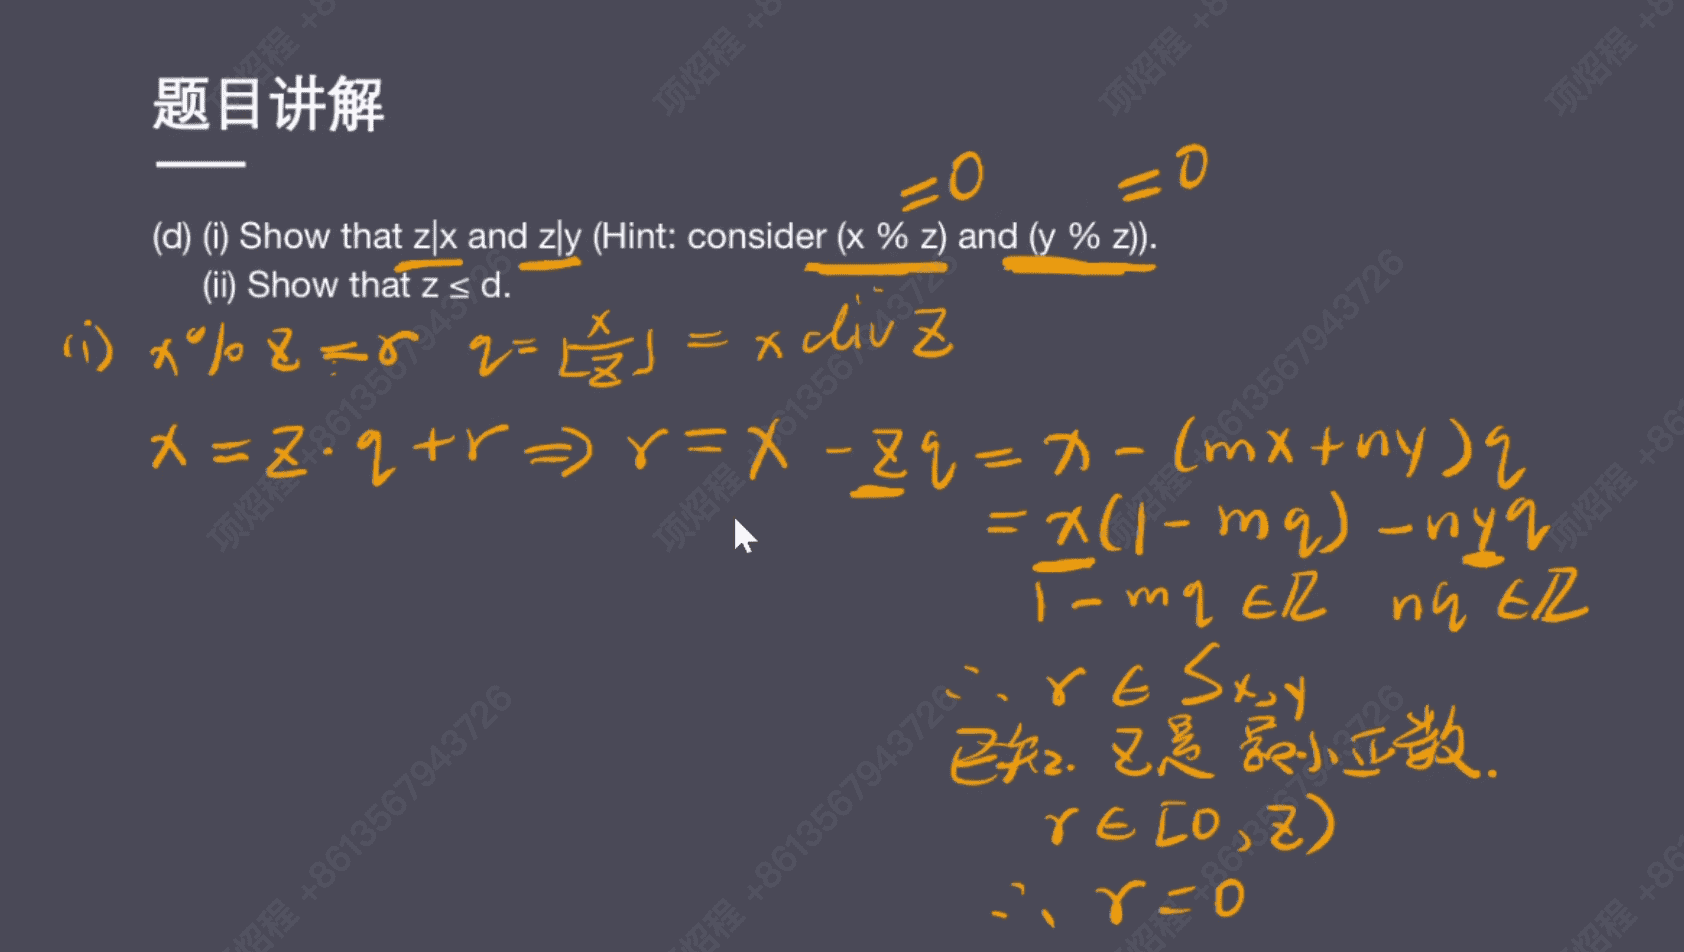 题目讲解
=0 =0
(d) (i) Show that z|x and z|y (Hint: consider (x % z) and (y % z)).
(ii) Show that z ≤ d.
(i) x % z = r q = ⌊x/z⌋ = x div z
x = z · q + r ⇒ r = x - zq = x - (mx + ny)q
= x(1 - mq) - nyq
1 - mq ∈ ℤ nq ∈ ℤ
∴ r ∈ Sx,y
已知. z是最小正数.
r ∈ [0, z)
∴ r = 0
项焰程 +8613567943726